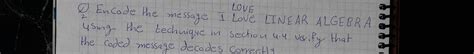 Q) Encode the message I LOVE Love LINEAR ALGEBRA
using the technique in section 4.4 verify that
the coded message decodes correctly